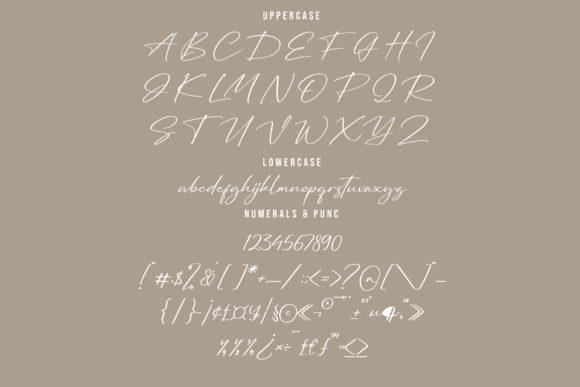 UPPERCASE
A B C D E F G H I
J K L M N O P Q R
S T U V W X Y Z
LOWERCASE
abcdefghijklmnopqrstuvwxyz
NUMERALS & PUNC
1234567890
! " # $ % & ' [ ] * + , - . / : ; < = > ? @ [ \ ] ^ _
{ | } ~ ¡ ¢ £ ¤ ¥ ¦ § © « ¬ ® ¯ ° ± µ ¶ »
¼ ½ ¾ ¿ × ÷